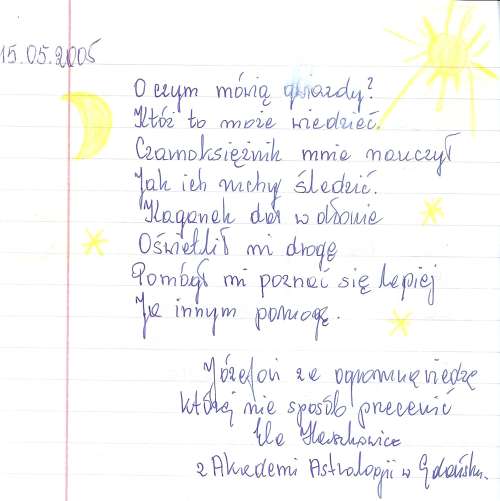 15.05.2005
O czym mówią gwiazdy?
Któż to może wiedzieć.
Czarnoksiężnik mnie nauczył
Jak ich ruchy śledzić.
Kaganek dał w dłonie
Oświetlił mi drogę
Pomógł mi poznać się lepiej
Ja innym pomogę.
Józefowi za ogromną wiedzę
której nie sposób przecenić
Ela
z Akademi Astrologii w Gdańsku.